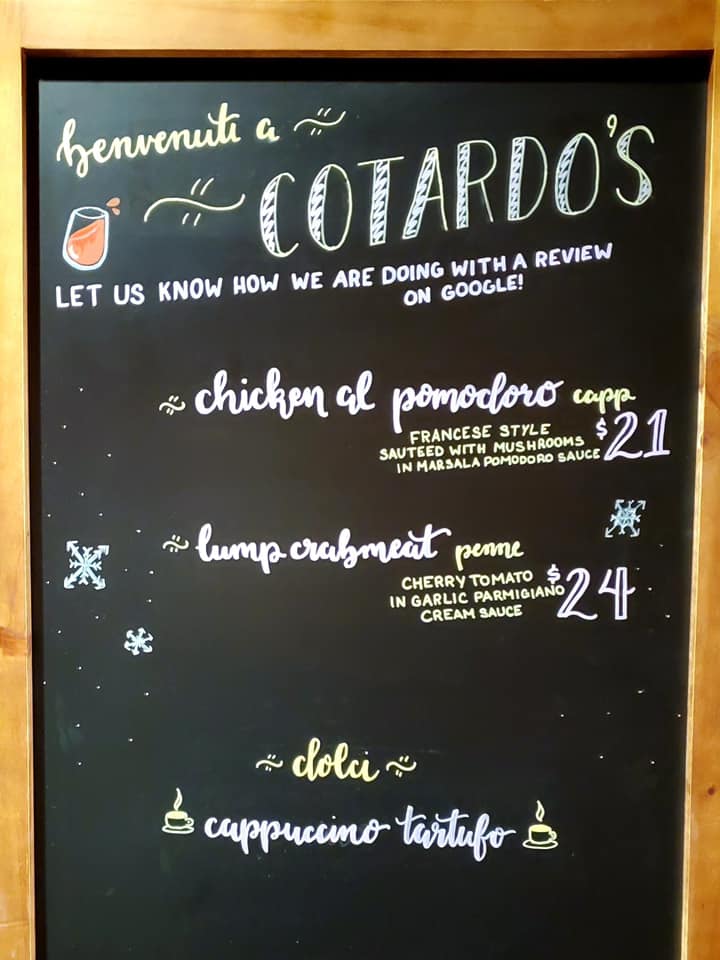 benvenuti a
COTARDO'S
LET US KNOW HOW WE ARE DOING WITH A REVIEW
ON GOOGLE!
chicken al pomodoro capp
FRANCESE STYLE
SAUTEED WITH MUSHROOMS
IN MARSALA POMODORO SAUCE
$21
lump crabmeat penne
CHERRY TOMATO
IN GARLIC PARMIGIANO
CREAM SAUCE
$24
dolci
cappuccino tartufo